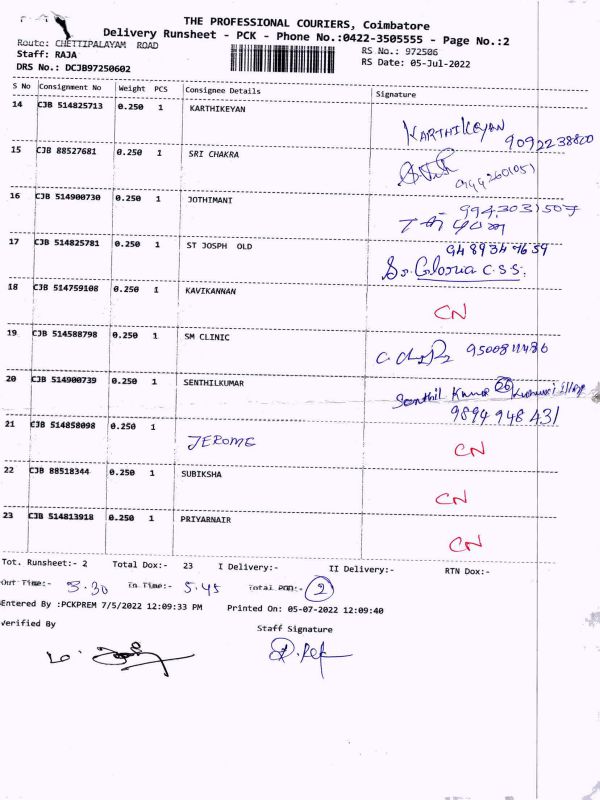 THE PROFESSIONAL COURIERS, Coimbatore
Delivery Runsheet - PCK - Phone No.:0422-3505555 - Page No.:2
Route: CHETTIPALAYAM ROAD RS No.: 972506
Staff: RAJA RS Date: 05-Jul-2022
DRS No.: DCJB97250602
S No Consignment No Weight PCS Consignee Details Signature
14 CJB 514825713 0.250 1 KARTHIKEYAN
KARTHIKEYAN 9092238800
15 CJB 88527681 0.250 1 SRI CHAKRA
9442601051
16 CJB 514900730 0.250 1 JOTHIMANI 9943031507
17 CJB 514825781 0.250 1 ST JOSPH OLD 9489347659
Sr. Gloria C.S.S.
18 CJB 514759108 0.250 1 KAVIKANNAN
CN
19 CJB 514588798 0.250 1 SM CLINIC
9500811486
20 CJB 514900739 0.250 1 SENTHILKUMAR
Senthil Kumar
9894 948 431
21 CJB 514858098 0.250 1
JEROME CN
22 CJB 88518344 0.250 1 SUBIKSHA
CN
23 CJB 514813918 0.250 1 PRIYARNAIR
CN
Tot. Runsheet:- 2 Total Dox:- 23 I Delivery:- II Delivery:- RTN Dox:-
Out Time:- 3.30 In Time:- 5.45 Total POD:- 2
Entered By :PCKPREM 7/5/2022 12:09:33 PM Printed On: 05-07-2022 12:09:40
Verified By Staff Signature